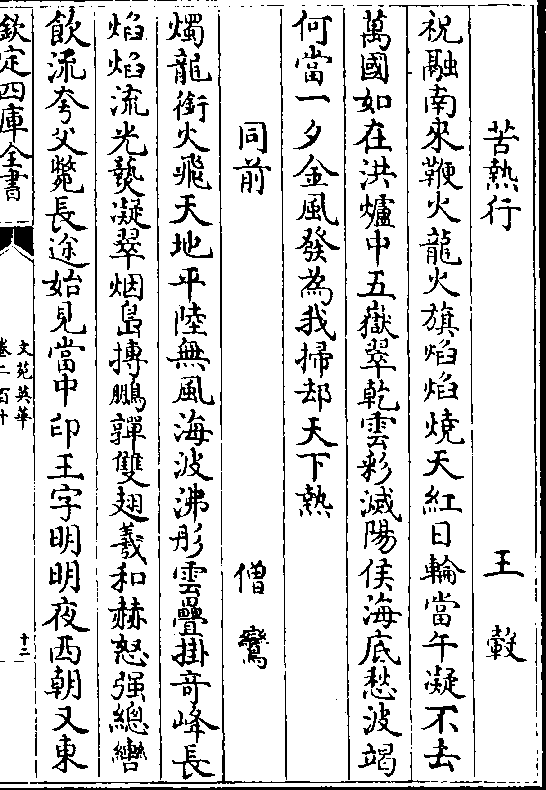 苦熱行　王轂
祝融南來鞭火龍火旗焰焰燒天紅日輪當午凝不去
萬國如在洪爐中五嶽翠乾雲彩滅陽侯海底愁波竭
何當一夕金風發為我掃却天下熱
同前　僧鸞
燭龍銜火飛天地平陸無風海波沸彤雲疊掛奇峰長
焰焰流光爇凝翠烟島摶鵬嚲雙翅羲和赫怒强總轡
飲流夸父斃長途始見當中印王字明明夜西朝又東
欽定四庫全書
文苑英華
卷二百十
十二